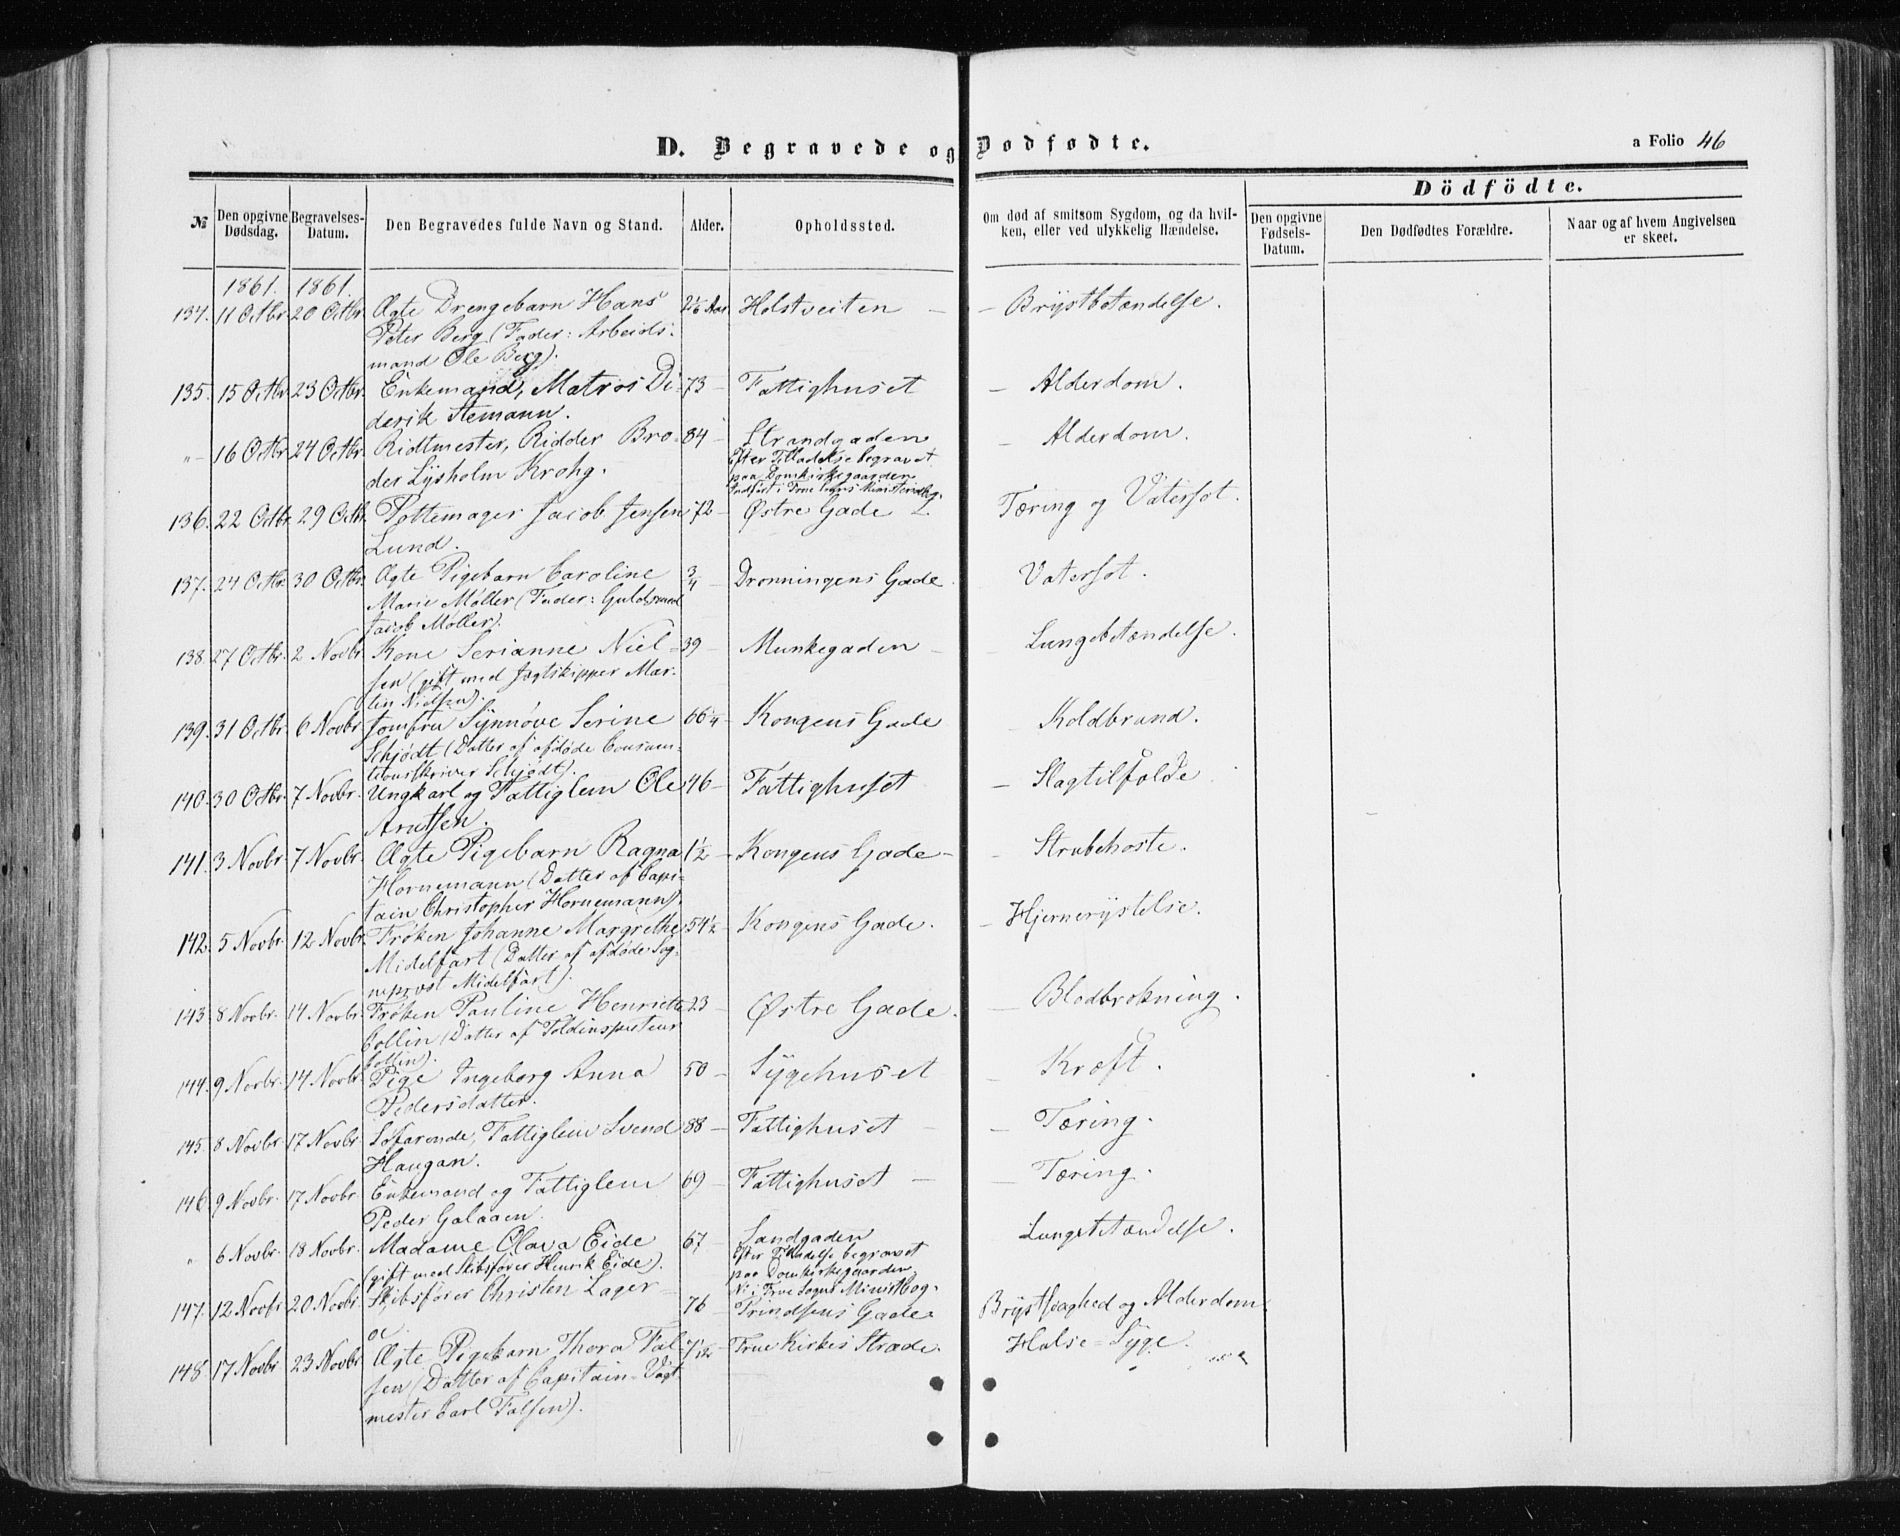 D. Begravede og Dødfødte.
a Folio 46
№
Den opgivne Dødsdag.
Begravelses-Datum.
Den Begravedes fulde Navn og Stand.
Alder.
Opholdssted.
Om død af smitsom Sygdom, og da hvil-
ken, eller ved ulykkelig Hændelse.
Dödfödte.
Den opgivne Fødsels-Datum.
Den Dødfødtes Forældre.
Naar og af hvem Angivelsen er skeet.
1861. 1861.
134. 11 Octbr. 20 Octbr. Ægte Drengebarn Hans 2 1/6 Aar Holstveiten – Brystbetændelse.
Peter Berg (Fader: Arbeids-
mand Ole Berg).
135. 15 Octbr. 23 Octbr. Enkemand, Matros Di- 73 – Fattighuset – Alderdom.
derik Stemann.
„ 16 Octbr. 24 Octbr. Ridtmester, Ridder Bro- 84 – Strandgaden – Alderdom.
der Lysholm Krohg.
Efter Tilladelse begravet
paa Domkirkegaarden
Indført i Frue Sogns Ministerialbg.
136. 22 Octbr. 29 Octb. Pottemager Jacob Jensen 72 – Østre Gade – Tæring og Vatersot.
Lund.
137. 24 Octbr. 30 Octbr. Ægte Pigebarn Caroline 3/4 – Dronningens Gade. Vatersot.
Marie Møller (Fader: Guldsmed
Jacob Møller).
138. 27 Octbr. 2 Novbr. Kone Serianne Niel- 39 – Munkegaden – Lungebetændelse.
sen (gift med Jagtskipper Mar-
tin Nielsen).
139. 31 Octbr. 6 Novbr. Jomfru Synnøve Serine 66 1/4 – Kongens Gade – Koldbrand.
Schjødt (Datter af afdøde Consum-
tionsskriver Schjødt).
140. 30 Octbr. 7 Novbr. Ungkarl og Fattiglem Ole 46 – Fattighuset – Slagtilfælde
Arntsen.
141. 3 Novbr. 7 Novbr. Ægte Pigebarn Ragna 1 1/2 – Kongens Gade – Strubehoste.
Hornemann (Datter af Capi-
tain Christopher Hornemann).
142. 5 Novbr. 12 Novbr. Frøken Johanne Margrethe 54 1/2 – Kongens Gade. – Hjernerystelse.
Midelfart (Datter af afdøde Sog-
neprost Midelfart).
143. 8 Novbr. 14 Novbr. Frøken Pauline Henriette 23 – Østre Gade. – Blodbrækning.
Collin (Datter af Toldinspecteur
Collin).
144. 9 Novbr. 14 Novbr. Pige Ingeborg Anna 50 – Sygehuset – Kræft.
Pedersdatter.
145. 8 Novbr. 17 Novbr. Søfarende, Fattiglem Svend 88 – Fattighuset – Tæring.
Haugan.
146. 9 Novbr. 17 Novbr. Enkemand og Fattiglem 69 – Fattighuset – Tæring.
Peder Galaaen.
„ 6 Novbr. 18 Novbr. Madame Olava Eide 67 – Sandgaden Lungebetændelse.
(gift med Skibsfører Henrik Eide).
Efter Tilladelse begravet
paa Domkirkegaarden
N. i Frue Sogns Ministbog.
147. 12 Novbr. 20 Novbr. Skibsfører Christen Lager- 76 – Prindsens Gade. Brystsvaghed og Alderdom.
a.
148. 17 Novbr. 23 Novbr. Ægte Pigebarn Thora Fal- 7/12 – Frue Kirkes Stræde. Halse-Syge.
sen (Datter af Capitain-Vagt-
mester Carl Falsen).